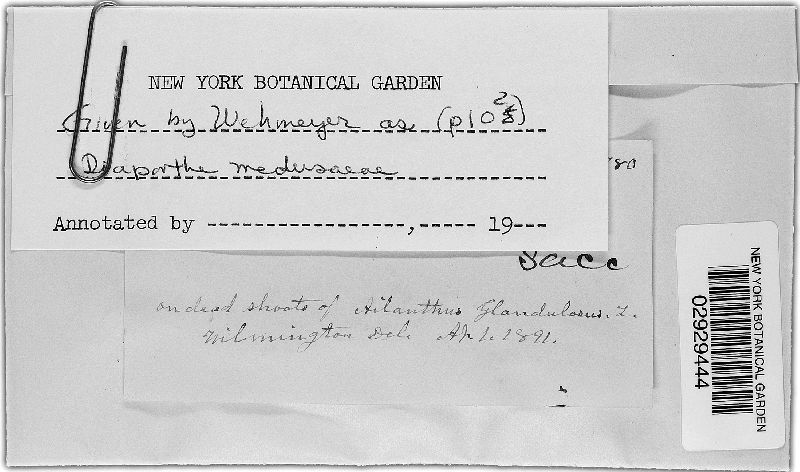 NEW YORK BOTANICAL GARDEN
Given by Wehmeyer as (p10
Diaporthe medusaeae
Annotated by ----------------,----- 19---
780
Sacc
on dead shoots of Ailanthus Glandulosus. L.
Wilmington Del. Ap 1. 1891.
NEW YORK BOTANICAL GARDEN
02929444